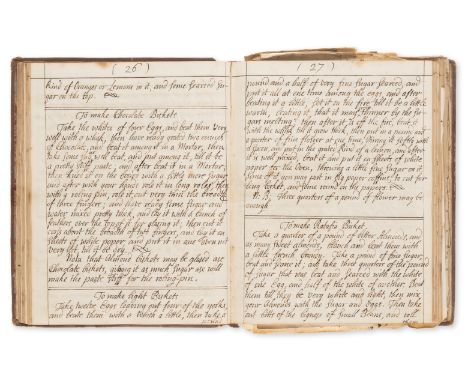 ( 26 )
kind of Oranges or Lemons in it, and some searced su-
gar on the top.
To make Chocolate Biskets
Take the whites of four Eggs, and beat them very
well with a whisk, then have ready grated two ounces
of Chocolate, and beat it among in a Mortar, then
take some sug well beat, and put among it, till it be
a pretty stiff paste, and after beat it in a Mortar,
then knead it on the table with a little more sugar
and after with your hands role it in long roles, then
with a roling pin, role it out very thin the breadth
of three fingers, and have ready some sugar and
water, made pretty thick, and lay it with a bunch of
feathers over the top of it for glasing it, then cut it
cross about the breadth of two fingers, and lay it on
sheets of white paper and put it in an Oven not
very hot, till it be dry.
Note that Almond biskets may be glased as
Chocolate biskets, among it as much sugar as will
make the paste stiff for the roling-pin.
To make light Biskets
Take twelve Eggs leaving out four of the yolks,
and beate them with a whisk a little, then take a
( 27 )
pound and a half of very fine sugar searced, and
put it all at one time among the eggs and after
beating it a little, set it on the fire till it be a little
warm, beating it that it may thinner for the su-
gar melting; then after it is off the fire, beat it
with the whisk till it grow thick, then put in a pound and
quarter of fine flower
after
is well mixed, beat it and put it in sheets of white
paper to the Oven, throwing a little fine sugar on it
you may put in the paper coffins, to eat for
long bisket, and some round on the papers.
N: B: three quarters of a pound of flower may be
enough.
To make Ratafia Bisket.
Take a quarter of a pound of bitter Almonds, and
as many sweet Almonds, blanch and beat them with
a little french brandy. Take a pound of fine sugar
beat and searce it, and take three quarters of the pound
of sugar that was beat and searced with the white
of one Egg, and half of the white of another. Beat
them till they be very white and light, then mix
your almonds with the sugar and Eggs. Then take
out bitts of the bigness of small Beans, and roll